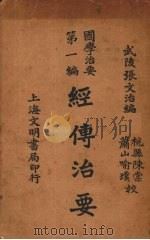 武陵張文治編
杭縣陳棠
蕭山喻璞校
經傳治要
國學治要
第一編
上海文明書局印行